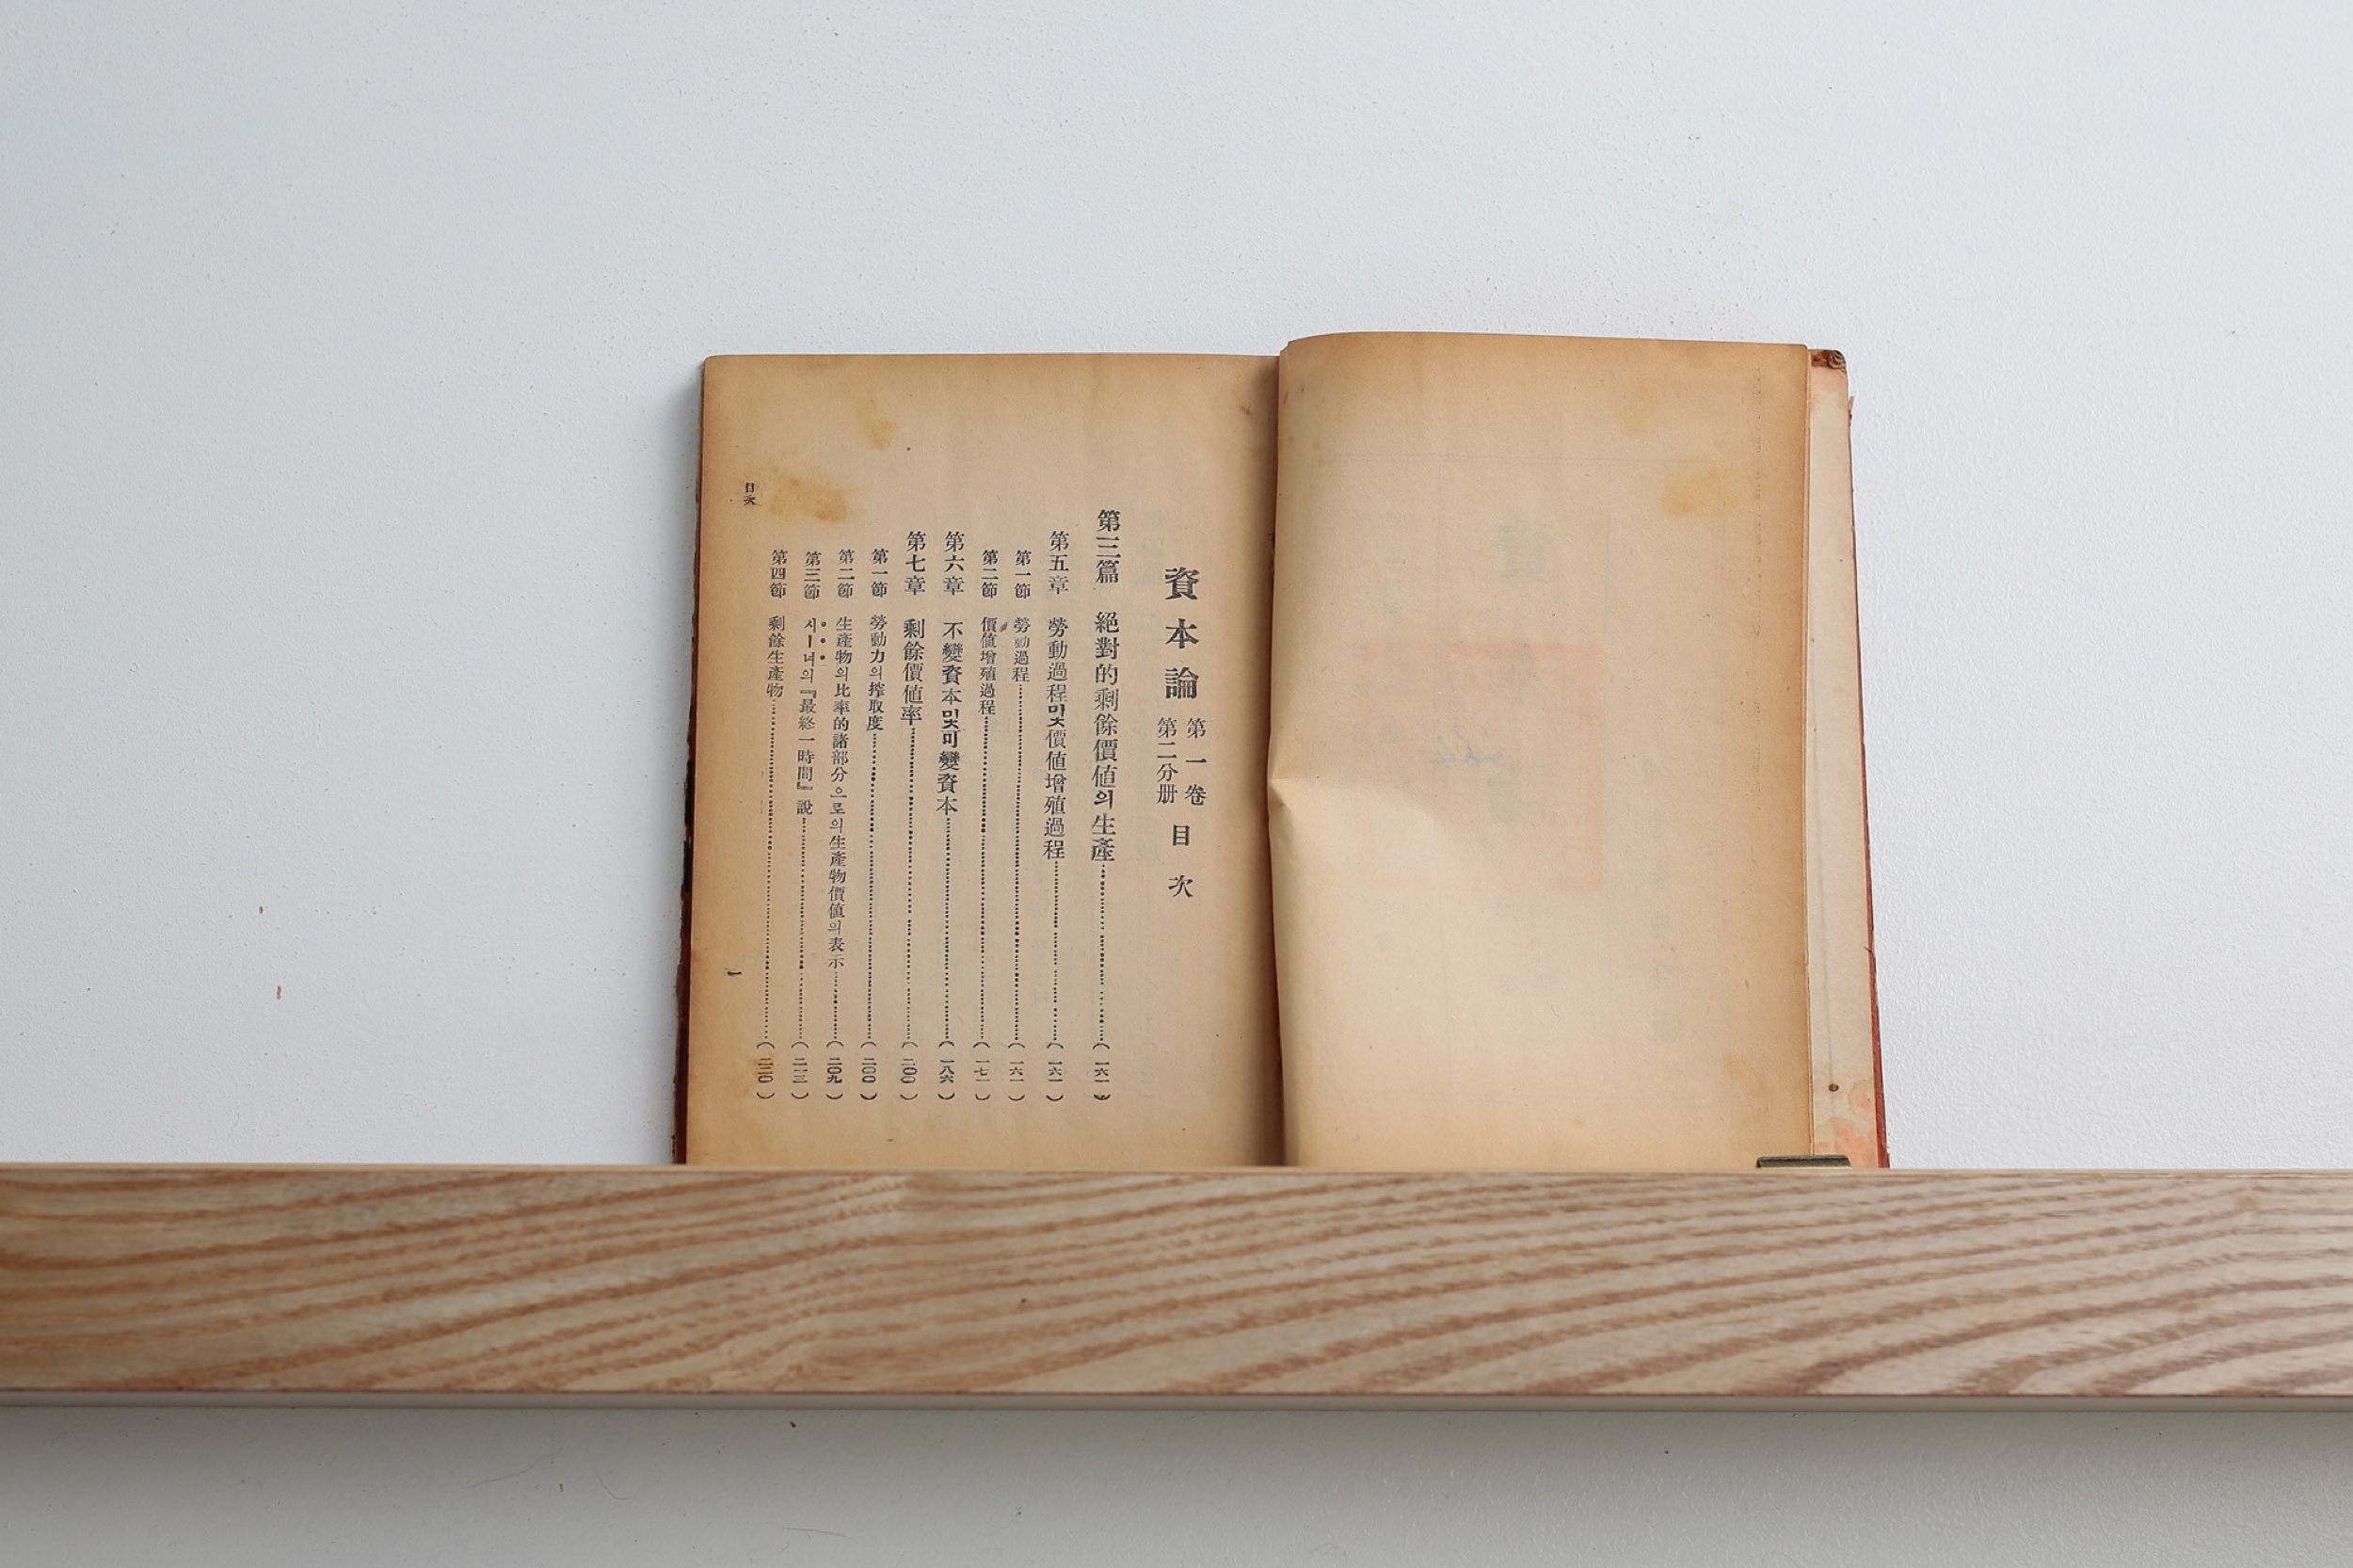 資本論 第一卷 第二分册 目次
第三篇 絕對的剩餘價値의生產……(一六一)
第五章 勞動過程및價値增殖過程……(一六一)
第一節 勞動過程……(一六一)
第二節 價値增殖過程……(一七一)
第六章 不變資本및可變資本……(一八六)
第七章 剩餘價値率……(二〇〇)
第一節 勞動力의搾取度……(二〇〇)
第二節 生產物의比率的諸部分으로의生產物價値의表示……(二〇九)
第三節 시ー녀의『最終一時間』說……(二一三)
第四節 剩餘生產物……(二二〇)
目次
一